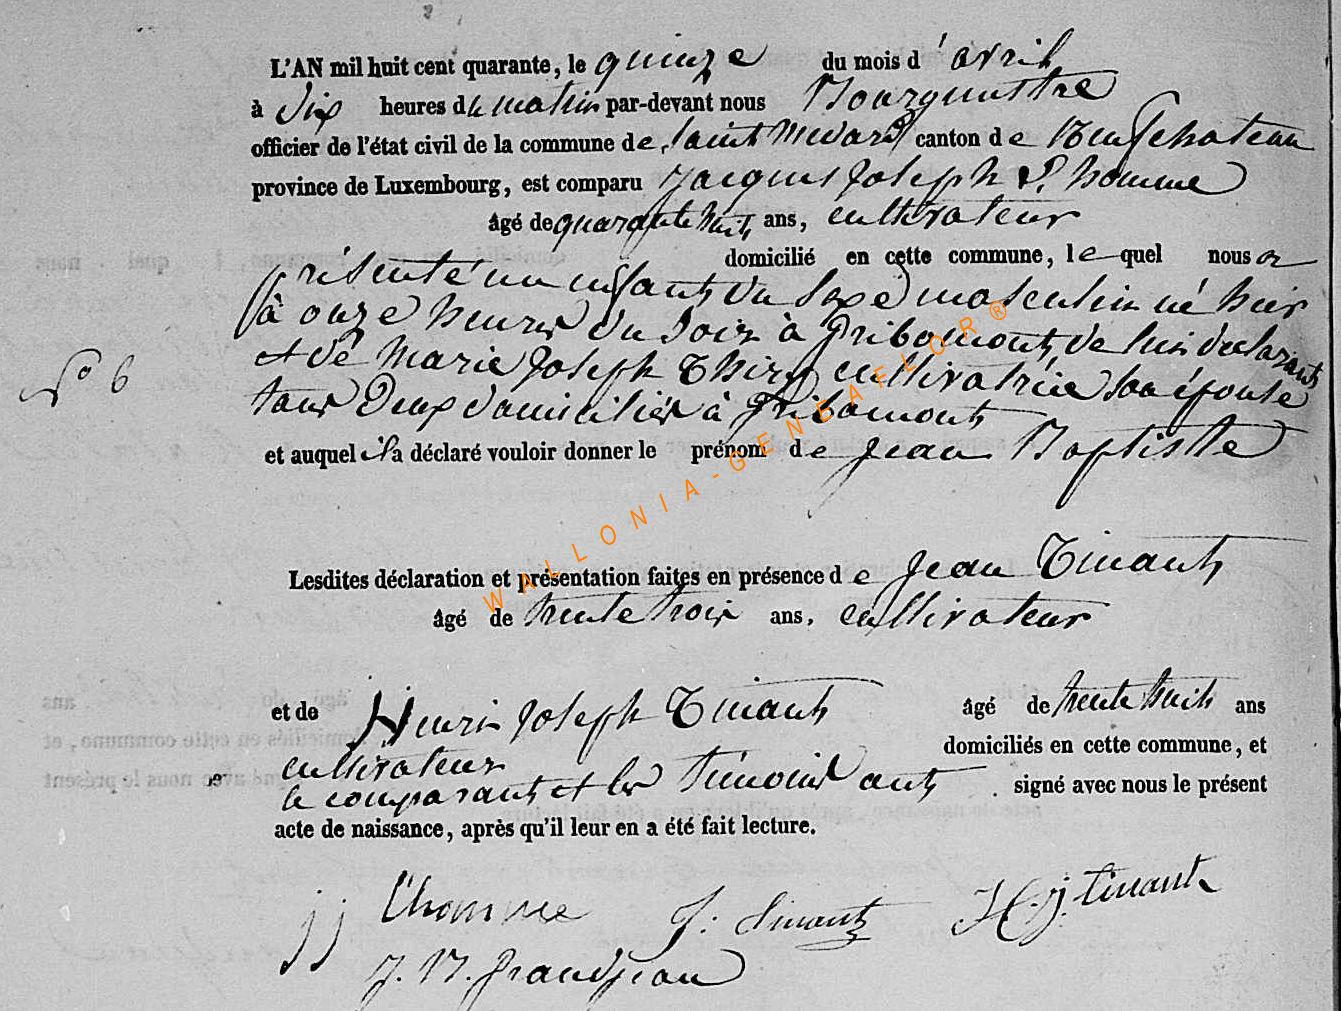 L'AN mil huit cent quarante, le quinze du mois d'avril
à dix heures du matin par-devant nous Bourgmestre
officier de l'état civil de la commune de Saint Medard canton de Neufchateau
province de Luxembourg, est comparu Jacques Joseph L'homme
âgé de quarante huit ans, cultivateur
domicilié en cette commune, le quel nous a
présenté un enfant du sexe masculin né hier
à onze heures du soir à Gribomont, de lui déclarant
N° 6
et de Marie Joseph Thiry cultivatrice son épouse
tous deux domiciliés à Gribomont
et auquel il a déclaré vouloir donner le prénom de Jean Baptiste
WALLONIA-GENEAFLOR®
Lesdites déclaration et présentation faites en présence de Jean Tinant
âgé de trente trois ans, cultivateur
et de Henri Joseph Tinant âgé de trente huit ans
cultivateur domiciliés en cette commune, et
le comparant et les témoins ont signé avec nous le présent
acte de naissance, après qu'il leur en a été fait lecture.
jj L'homme J: Tinant H. j. tinant
J. B. Grandjean